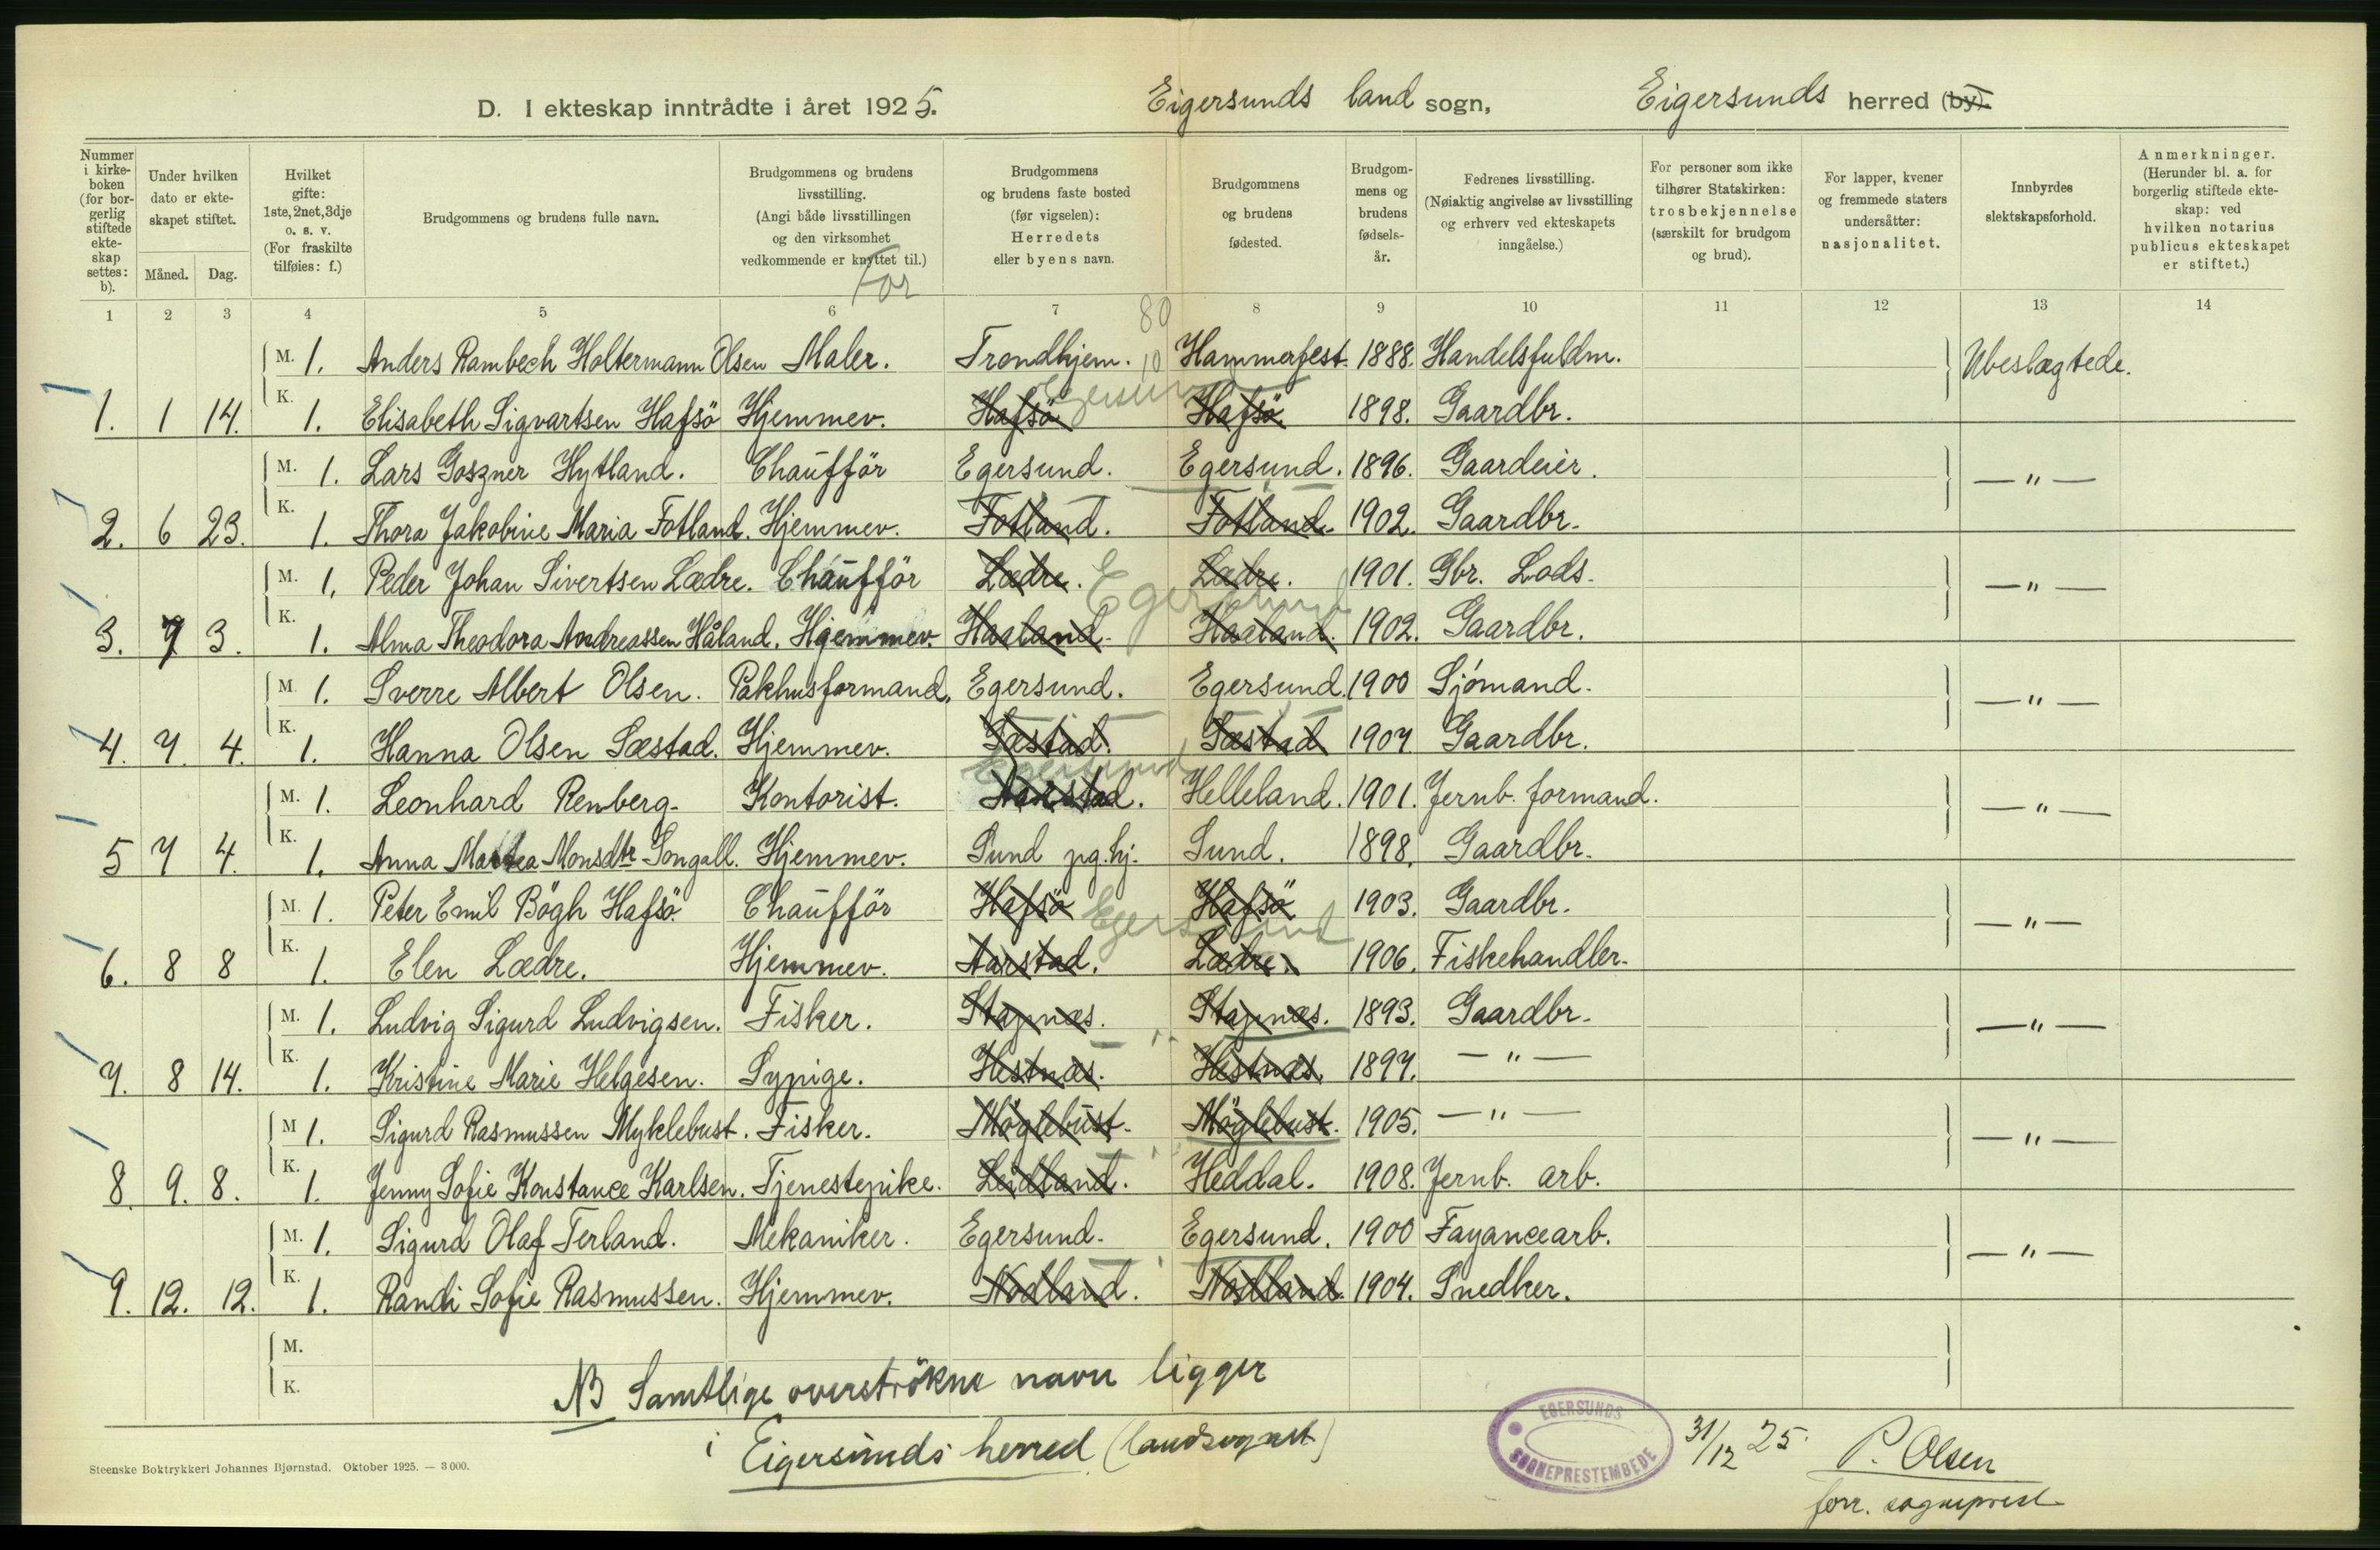 D. I ekteskap inntrådte i året 1925. Eigersunds land sogn, Eigersunds herred (by).
Nummer i kirkeboken (for borgerlig stiftede ekteskap settes: b).
Under hvilken dato er ekteskapet stiftet.
Måned. Dag.
Hvilket gifte: 1ste, 2net, 3dje o. s. v. (For fraskilte tilføies: f.)
Brudgommens og brudens fulle navn.
Brudgommens og brudens livsstilling. (Angi både livsstillingen og den virksomhet vedkommende er knyttet til.)
Brudgommens og brudens faste bosted (før vigselen): Herredets eller byens navn.
Brudgommens og brudens fødested.
Brudgommens og brudens fødselsår.
Fedrenes livsstilling. (Nøiaktig angivelse av livsstilling og erhverv ved ekteskapets inngåelse.)
For personer som ikke tilhører Statskirken: trosbekjennelse (særskilt for brudgom og brud).
For lapper, kvener og fremmede staters undersåtter: nasjonalitet.
Innbyrdes slektskapsforhold.
Anmerkninger. (Herunder bl. a. for borgerlig stiftede ekteskap: ved hvilken notarius publicus ekteskapet er stiftet.)
1 2 3 4 5 6 7 8 9 10 11 12 13 14
80
M. 1. Anders Rambech Holtermann Olsen Maler. Trondhjem. 10 Hammerfest. 1888. Handelsfuldm. Ubeslægtede.
Egersund
1. 1 14. K. 1. Elisabeth Sigvartsen Hafsö Hjemmev. Hafsö Hafsö 1898. Gaardbr.
M. 1. Lars Goszner Hytland. Chaufför Egersund. Egersund. 1896. Gaardeier. — " —
2. 6 23. K. 1. Thora Jakobine Maria Fotland. Hjemmev. Fotland. Fotland. 1902. Gaardbr.
M. 1. Peder Johan Sivertsen Lædre. Chaufför Lædre. Lædre. 1901. Gbr. Lods. — " —
Egersund
3. 7 3. K. 1. Alma Theodora Andreassen Håland. Hjemmev. Haaland. Haaland. 1902. Gaardbr.
M. 1. Sverre Albert Olsen. Pakhusformand. Egersund. Egersund. 1900 Sjömand. — " —
4. 7. 4. K. 1. Hanna Olsen Sæstad. Hjemmev. Sæstad. Sæstad 1907 Gaardbr.
Egersund
M. 1. Leonhard Remberg. Kontorist. Aarstad. Helleland. 1901. Jernb. formand. — " —
5 7 4. K. 1. Anna Martea Monsdtr Songall. Hjemmev. Sund pg. hj. Sund. 1898. Gaardbr.
M. 1. Peter Emil Bögh Hafsö. Chaufför Hafsö Hafsö 1903. Gaardbr. — " —
Egersund
6. 8 8 K. 1. Elen Lædre. Hjemmev. Aarstad. Lædre. 1906. Fiskehandler.
M. 1. Ludvig Sigurd Ludvigsen. Fisker. Stapnæs. Stapnæs. 1893. Gaardbr. — " —
7. 8 14. K. 1. Kristine Marie Helgesen. Sypige. Hestnæs. Hestnæs. 1897. — " —
M 1. Sigurd Rasmussen Myklebust. Fisker. Möglebust. Möglebust. 1905. — " — — " —
8. 9. 8. K. 1. Jenny Sofie Konstance Karlsen. Tjenestepike. Leidland. Heddal. 1908. Jernb. arb.
M. 1. Sigurd Olaf Terland. Mekaniker. Egersund. Egersund. 1900 Fayancearb. — " —
9. 12. 12. K. 1. Randi Sofie Rasmussen. Hjemmev. Nodland. Nodland. 1904. Snedker.
M.
K.
NB Samtlige overströkne navn ligger
i Eigersunds herred (landsognet)
EGERSUNDS SOGNEPRESTEMBEDE
31/12 25. P. Olsen
forr. sogneprest
Steenske Boktrykkeri Johannes Bjørnstad. Oktober 1925. — 3 000.